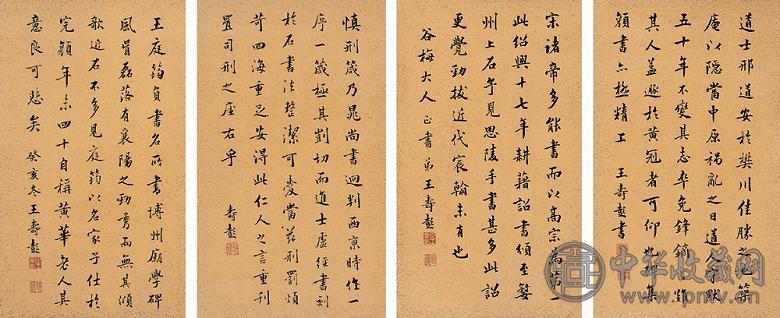 道士邢道安於樊川佳勝之地築
庵以隱當中原禍亂之日道人守默
五十年不變其志卒免鋒鏑之難
其人蓋遯於黃冠者可仰也碑集
顏書亦極精工 王壽彭書
宋諸帝多能書而以高宗為第一
此紹興十七年耕藉詔書頒至婺
州上石予見思陵手書甚多此詔
更覺勁拔近代宸翰未有也
谷梅大人正書 弟王壽彭
慎刑箴乃晁尚書迥判西京時作一
序一箴極其剴切而進士盧經書刻
於石書法整潔可愛當茲刑罰煩
苛四海重足安得此仁人之言重刊
置司刑之座右乎
壽彭
王庭筠負書名所書博州廟學碑
風骨磊落有襄陽之勁秀而無其傾
欹近石不多見庭筠以名家子仕於
完顏年未四十自稱黃華老人其
意良可悲矣 癸亥冬王壽彭
中华收藏网
www.pmv.cn